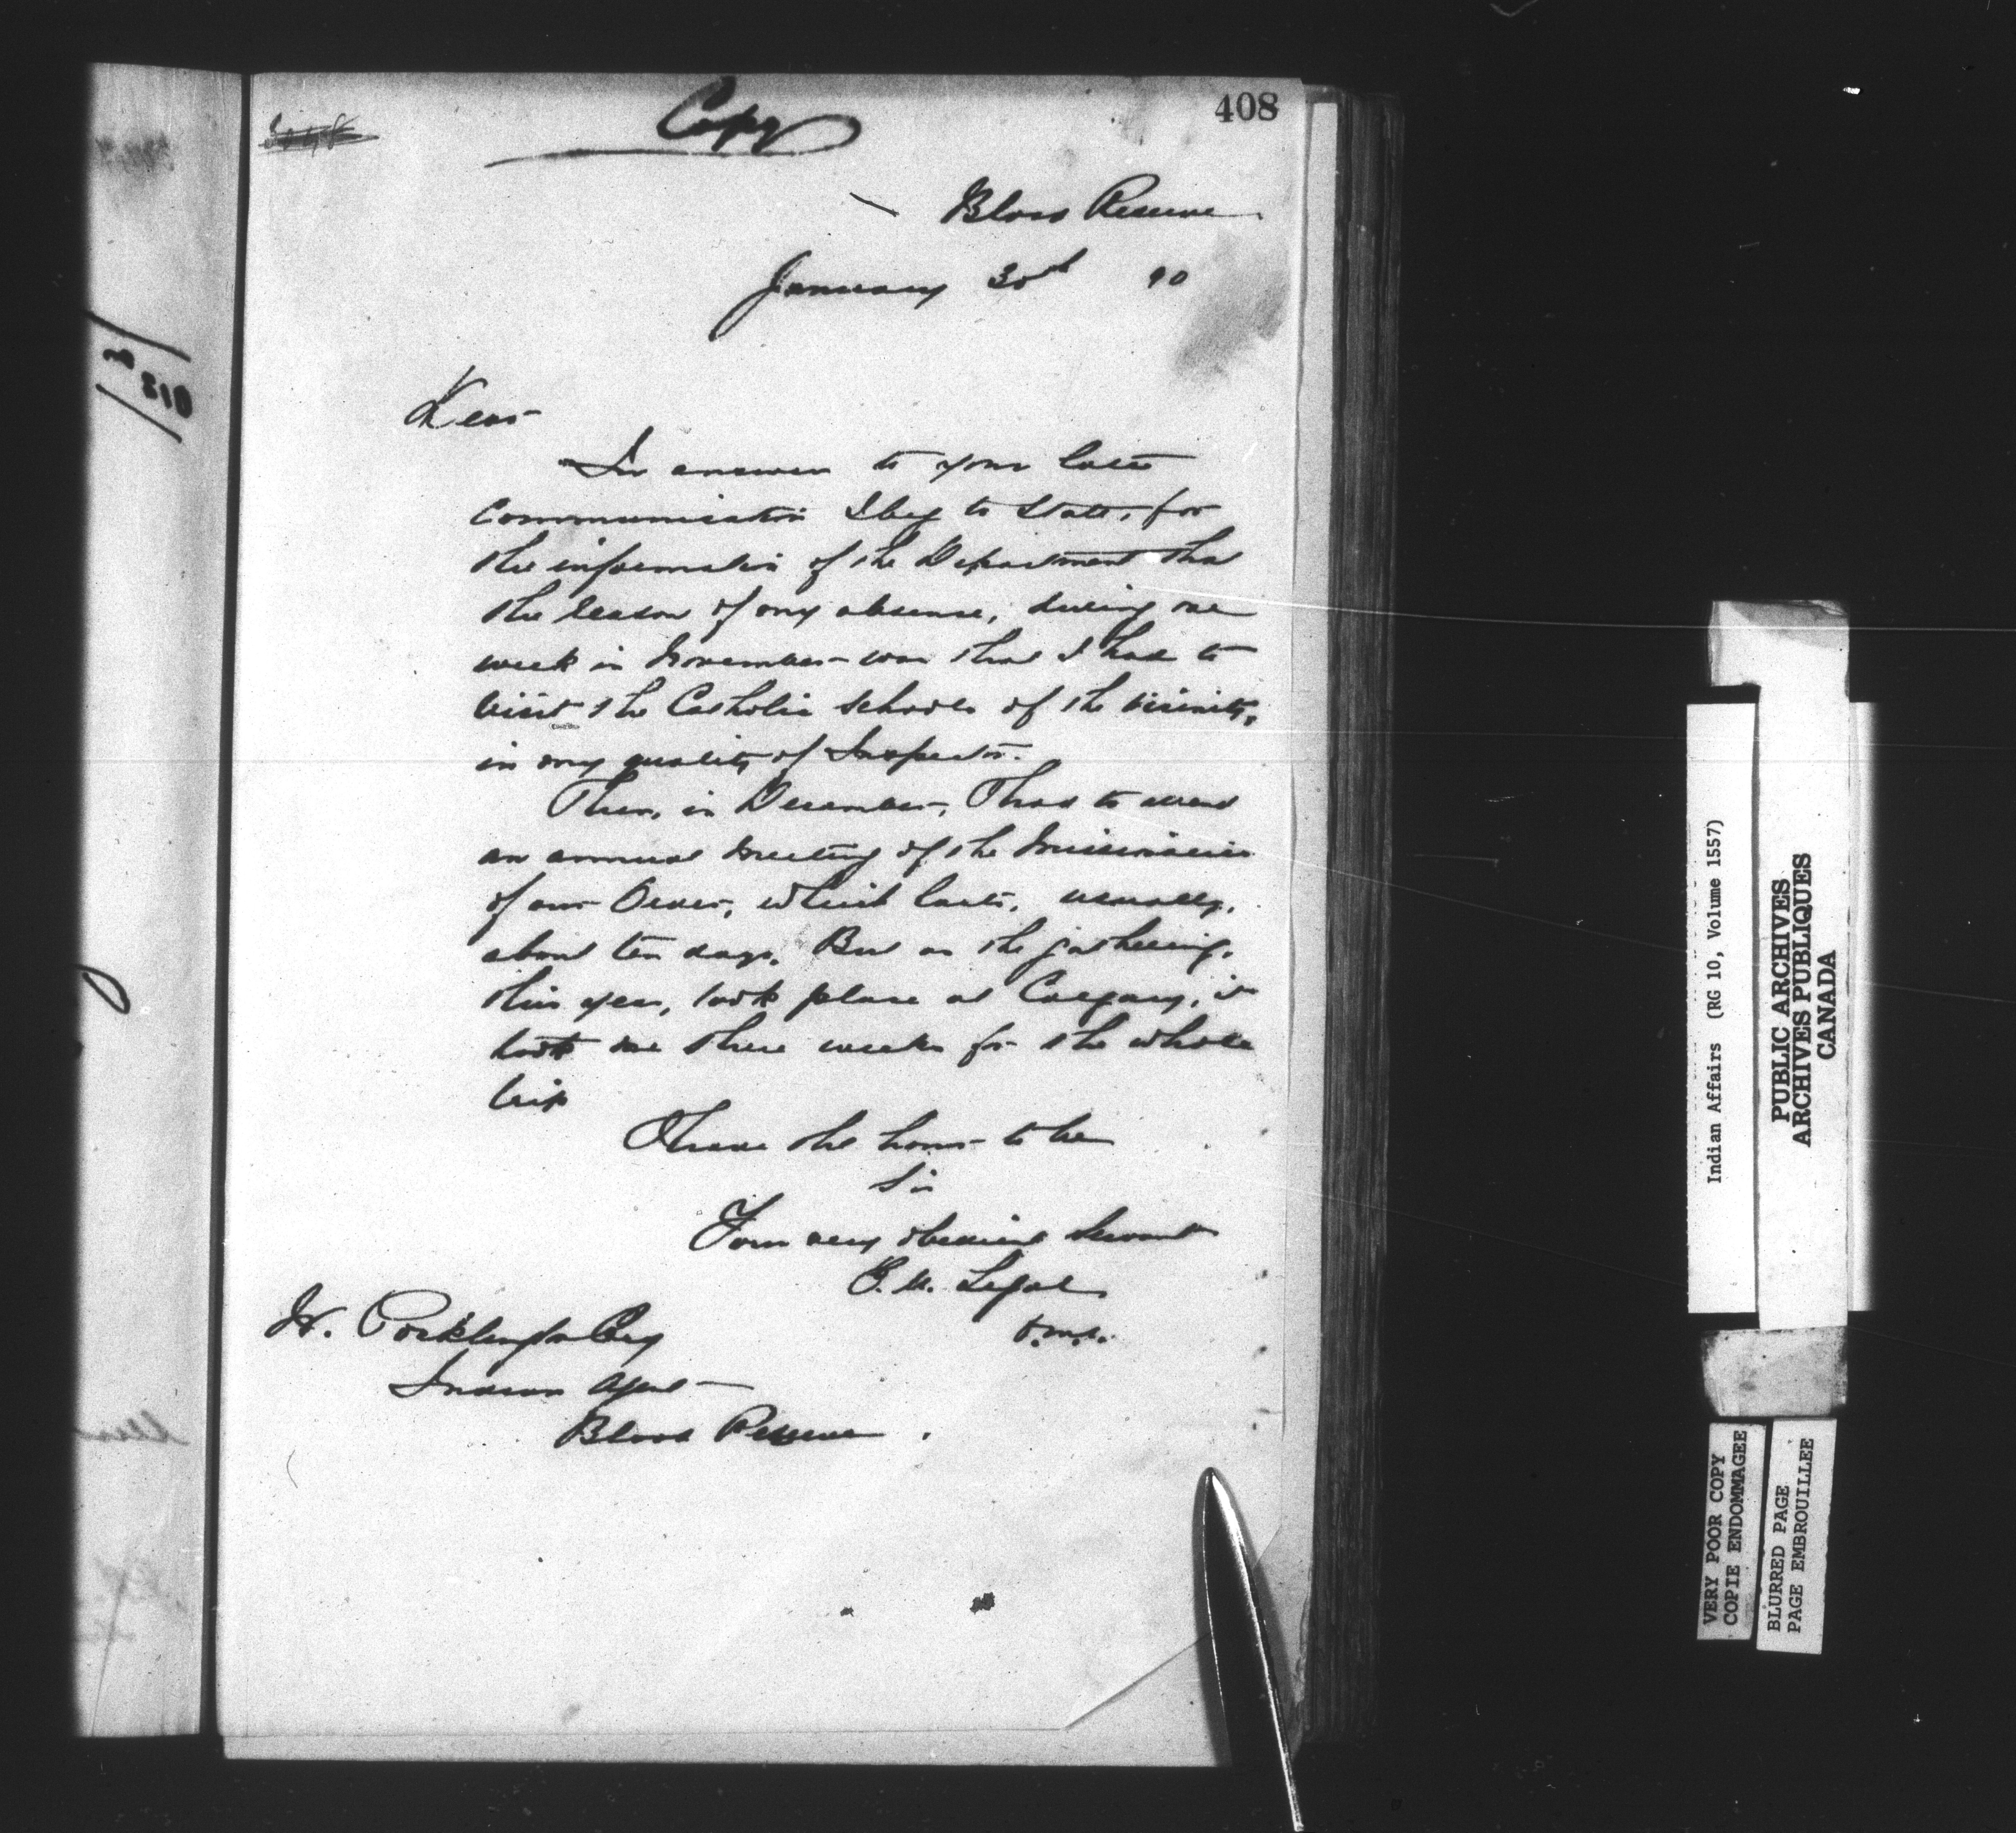 408
Copy
Blood Reserve
January 30th 90
Dear
In answer to your last
communication I beg to state, for
the information of the Department that
the reason of my absence, during one
week in November was that I had to
visit the Catholic schools of the vicinity,
in my quality of Inspector.
Then, in December, I had to attend
an annual meeting of the Missionaries
of our Order, which lasts, usually,
about ten days. But as the gathering,
this year, took place at Calgary, it
took me three weeks for the whole
trip
I have the honor to be
Sir
Your very obedient Servant
E. M. Legal
O.M.I.
W. Pocklington Esq
Indian Agent
Blood Reserve.
Indian Affairs (RG 10, Volume 1557)
PUBLIC ARCHIVES
ARCHIVES PUBLIQUES
CANADA
VERY POOR COPY
COPIE ENDOMMAGEE
BLURRED PAGE
PAGE EMBROUILLEE